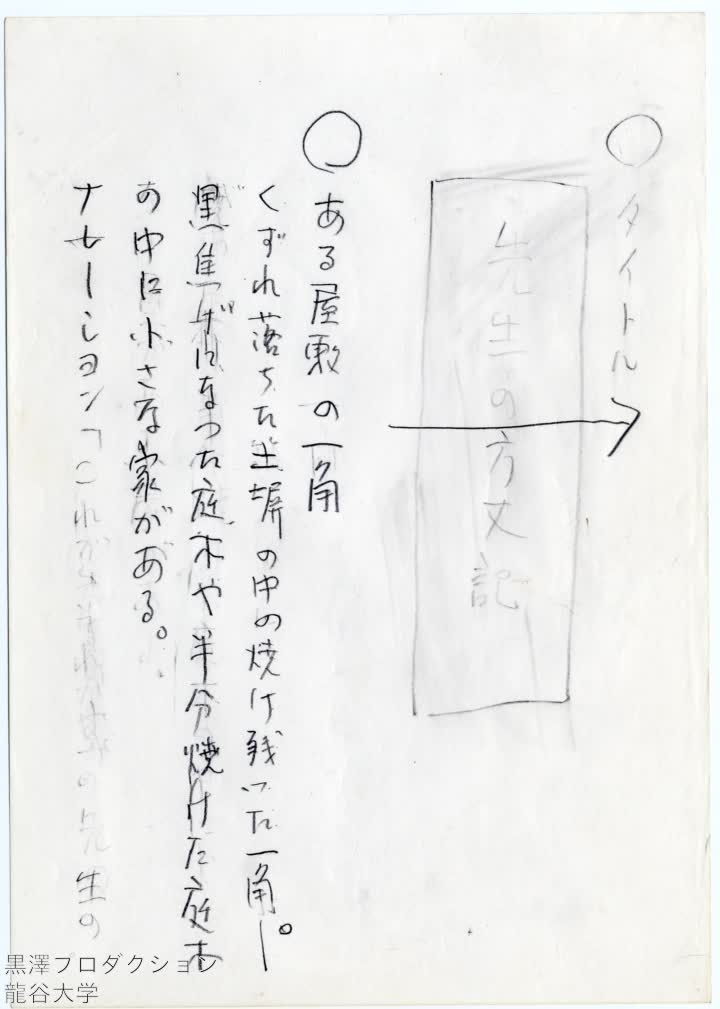 ○ タイトル
先生の方丈記
○ ある屋敷の一角
くずれ落ちた土塀の中の焼け残った一角。
黒焦げになった庭木や半分焼けた庭木
の中に小さな家がある。
ナレーション「これが
先生の
黒澤プロダクション
龍谷大学